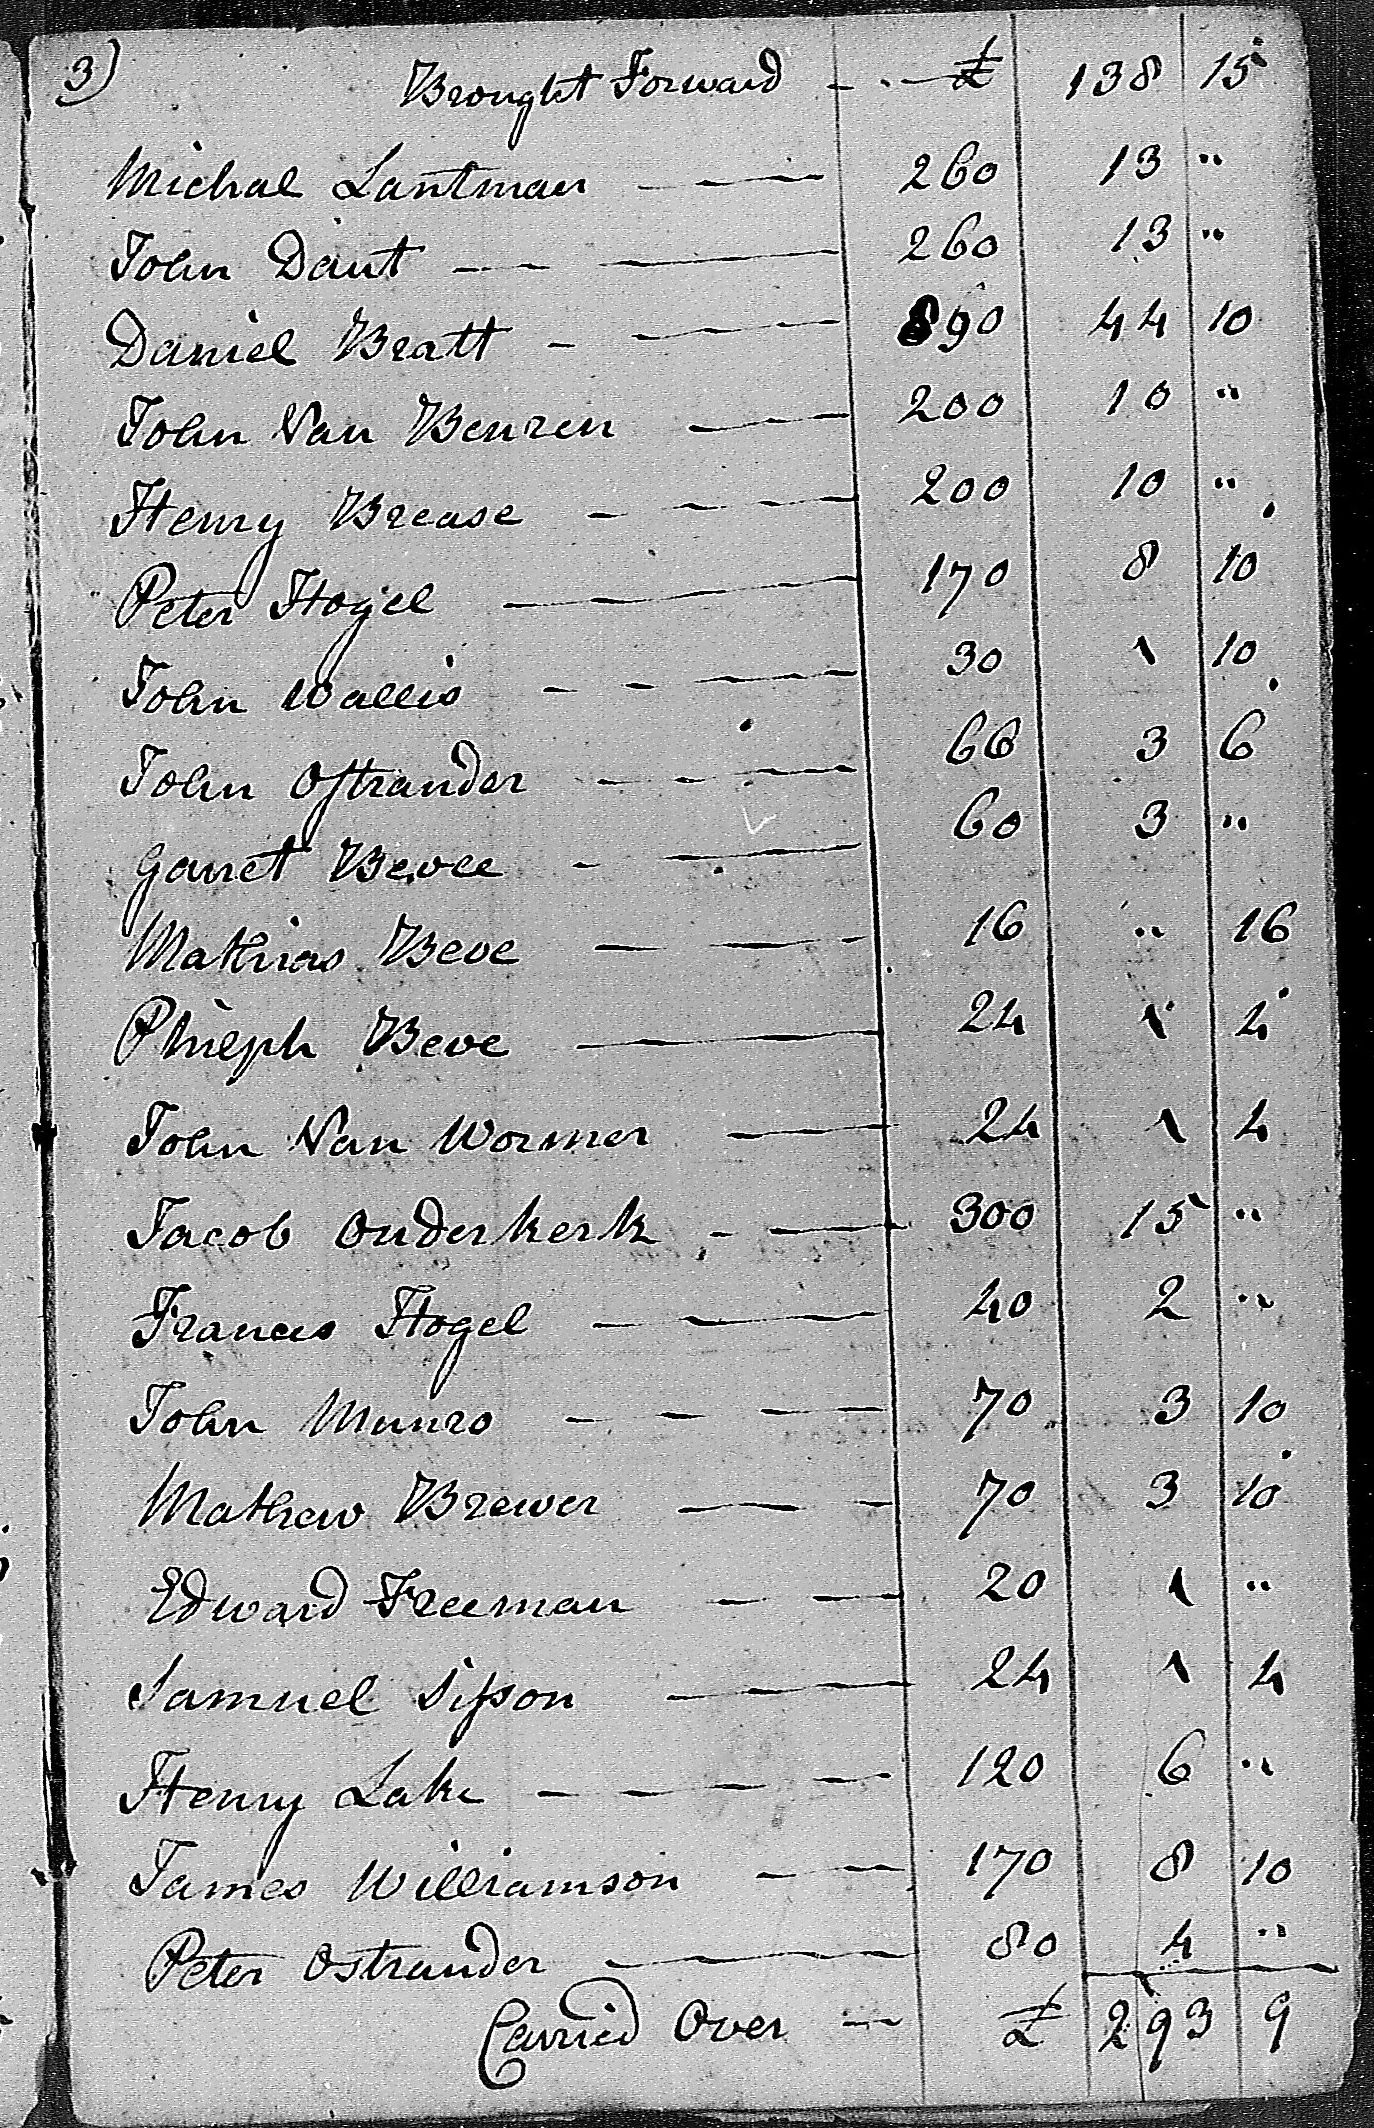 3) Brought Forward - - £ 138 15
Michal Lantman 260 13 "
John Daut 260 13 "
Daniel Bratt 890 44 10
John Van Benren 200 10 "
Henry Brease 200 10 "
Peter Hogel 170 8 10
John Wallis 30 1 10
John Oſtrander 66 3 6
Garret Bevee 60 3 "
Mathias Beve 16 " 16
Philiph Beve 24 1 4
John Van Wormer 24 1 4
Jacob Ouderkerk 300 15 "
Francis Hogel 40 2 "
John Munro 70 3 10
Mathew Brewer 70 3 10
Edward Freeman 20 1 "
Samuel Siſson 24 1 4
Henry Lake 120 6 "
James Williamson 170 8 10
Peter Ostrander 80 4 "
Carried Over - £ 293 9